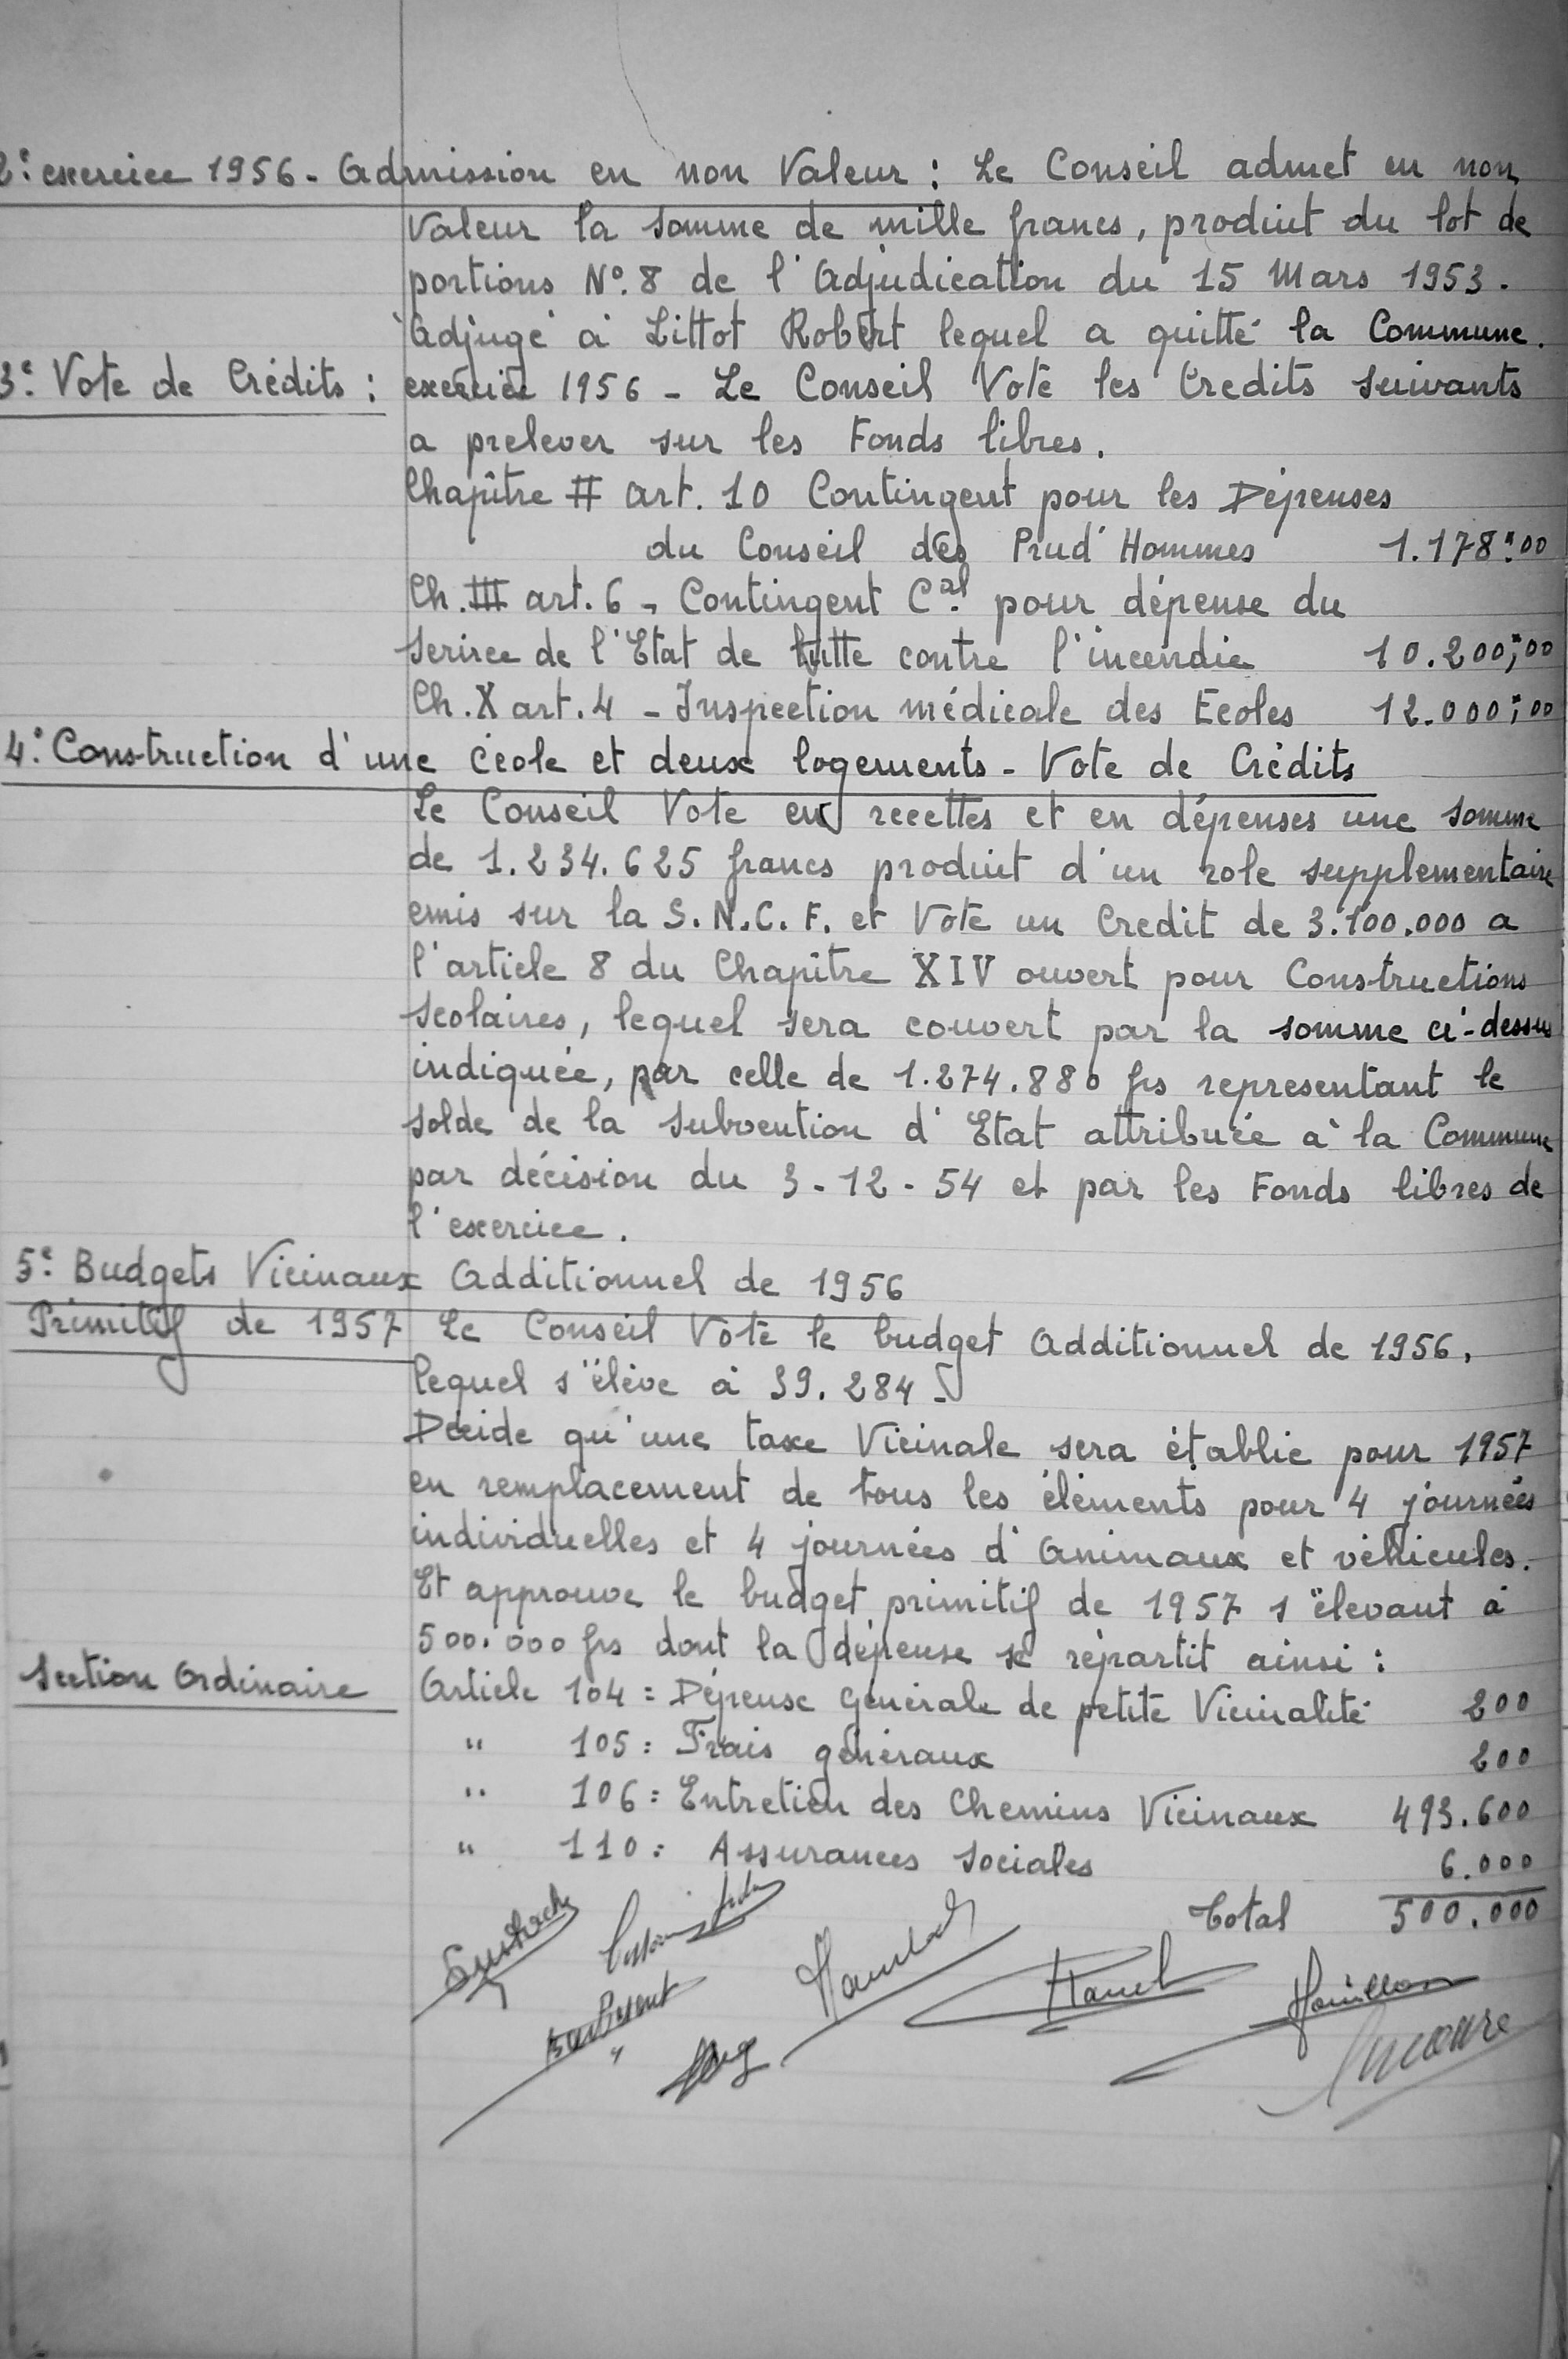 2e: exercice 1956 - Admission en non Valeur : Le Conseil admet en non
Valeur la somme de mille francs, produit du lot de
portions No. 8 de l'Adjudication du 15 Mars 1953.
Adjugé à Littot Robert lequel a quitté la Commune.
3e: Vote de Crédits : exercice 1956 - Le Conseil Vote les Credits suivants
a prelever sur les Fonds libres.
Chapître II art. 10 Contingent pour les Dépenses
du Conseil des Prud'Hommes 1.178"00
Ch. III art. 6 - Contingent Cal pour dépense du
serivce de l'Etat de lutte contre l'incendie 10.200"00
Ch. X art. 4 - Inspection médicale des Ecoles 12.000"00
4e: Construction d'une école et deux logements - Vote de Crédits
Le Conseil Vote en recettes et en dépenses une somme
de 1.234.625 francs produit d'un role supplementaire
emis sur la S.N.C.F. et Vote un Credit de 3.100.000 a
l'article 8 du Chapître XIV ouvert pour Constructions
scolaires, lequel sera couvert par la somme ci-dessus
indiquée, par celle de 1.274.880 frs representant le
solde de la subvention d'Etat attribuée à la Commune
par décision du 3-12-54 et par les Fonds libres de
l'exercice.
5e: Budgets Vicinaux Additionnel de 1956
Primitif de 1957 Le Conseil Vote le budget Additionnel de 1956,
lequel s'élève à 39.284 -
Décide qu'une taxe Vicinale sera établie pour 1957
en remplacement de tous les éléments pour 4 journées
individuelles et 4 journées d'Animaux et véhicules.
Et approuve le budget primitif de 1957 s'élevant à
500.000 frs dont la dépense se répartit ainsi :
Section Ordinaire Article 104 = Dépense générale de petite Vicinalité 200
" 105 : Frais généraux 200
" 106 = Entretien des Chemins Vicinaux 493.600
" 110 : Assurances Sociales 6.000
Total 500.000